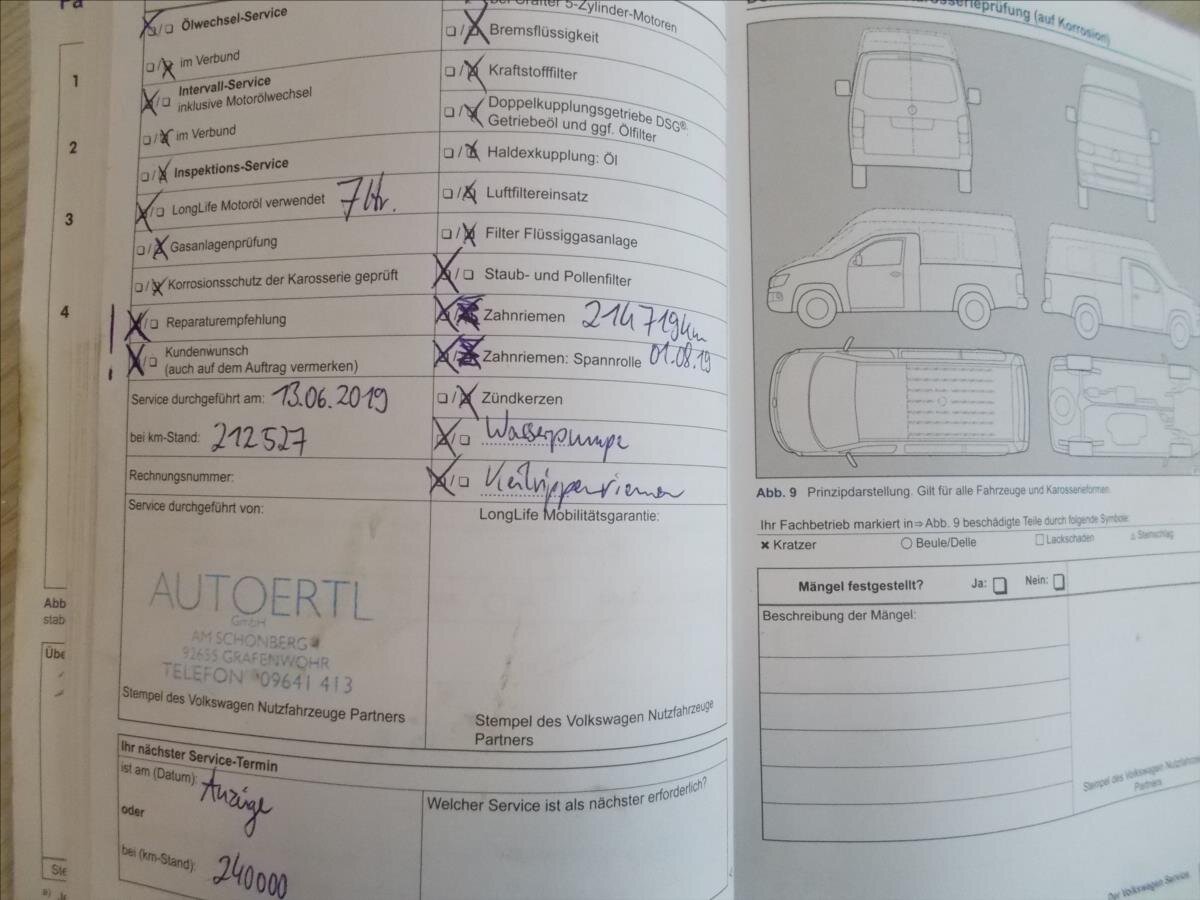 Ölwechsel-Service
im Verbund
Intervall-Service
inklusive Motorölwechsel
im Verbund
Inspektions-Service
LongLife Motoröl verwendet 7 ltr.
Gasanlagenprüfung
Korrosionsschutz der Karosserie geprüft
Reparaturempfehlung
Kundenwunsch
(auch auf dem Auftrag vermerken)
Service durchgeführt am: 13.06.2019
bei km-Stand: 212527
Rechnungsnummer:
Service durchgeführt von:
AUTOERTL
GmbH
AM SCHÖNBERG
92655 GRAFENWÖHR
TELEFON 09641 413
Stempel des Volkswagen Nutzfahrzeuge Partners
Ihr nächster Service-Termin
ist am (Datum): Anzeige
oder
bei (km-Stand): 240000
5-Zylinder-Motoren
Bremsflüssigkeit
Kraftstofffilter
Doppelkupplungsgetriebe DSG®:
Getriebeöl und ggf. Ölfilter
Haldexkupplung: Öl
Luftfiltereinsatz
Filter Flüssiggasanlage
Staub- und Pollenfilter
Zahnriemen 214719km
Zahnriemen: Spannrolle 01.08.19
Zündkerzen
Wasserpumpe
Keilrippenriemen
LongLife Mobilitätsgarantie:
Stempel des Volkswagen Nutzfahrzeuge
Partners
Welcher Service ist als nächster erforderlich?
1
2
3
4
Abb
stab
Übe
Ste
(auf Korrosion)
Abb. 9 Prinzipdarstellung. Gilt für alle Fahrzeuge und Karosserieformen.
Ihr Fachbetrieb markiert in ⇒ Abb. 9 beschädigte Teile durch folgende Symbole:
Kratzer Beule/Delle Lackschaden Steinschlag
Mängel festgestellt? Ja: Nein:
Beschreibung der Mängel:
Stempel des Volkswagen Nutzfahrzeuge
Partners
Der Volkswagen Service